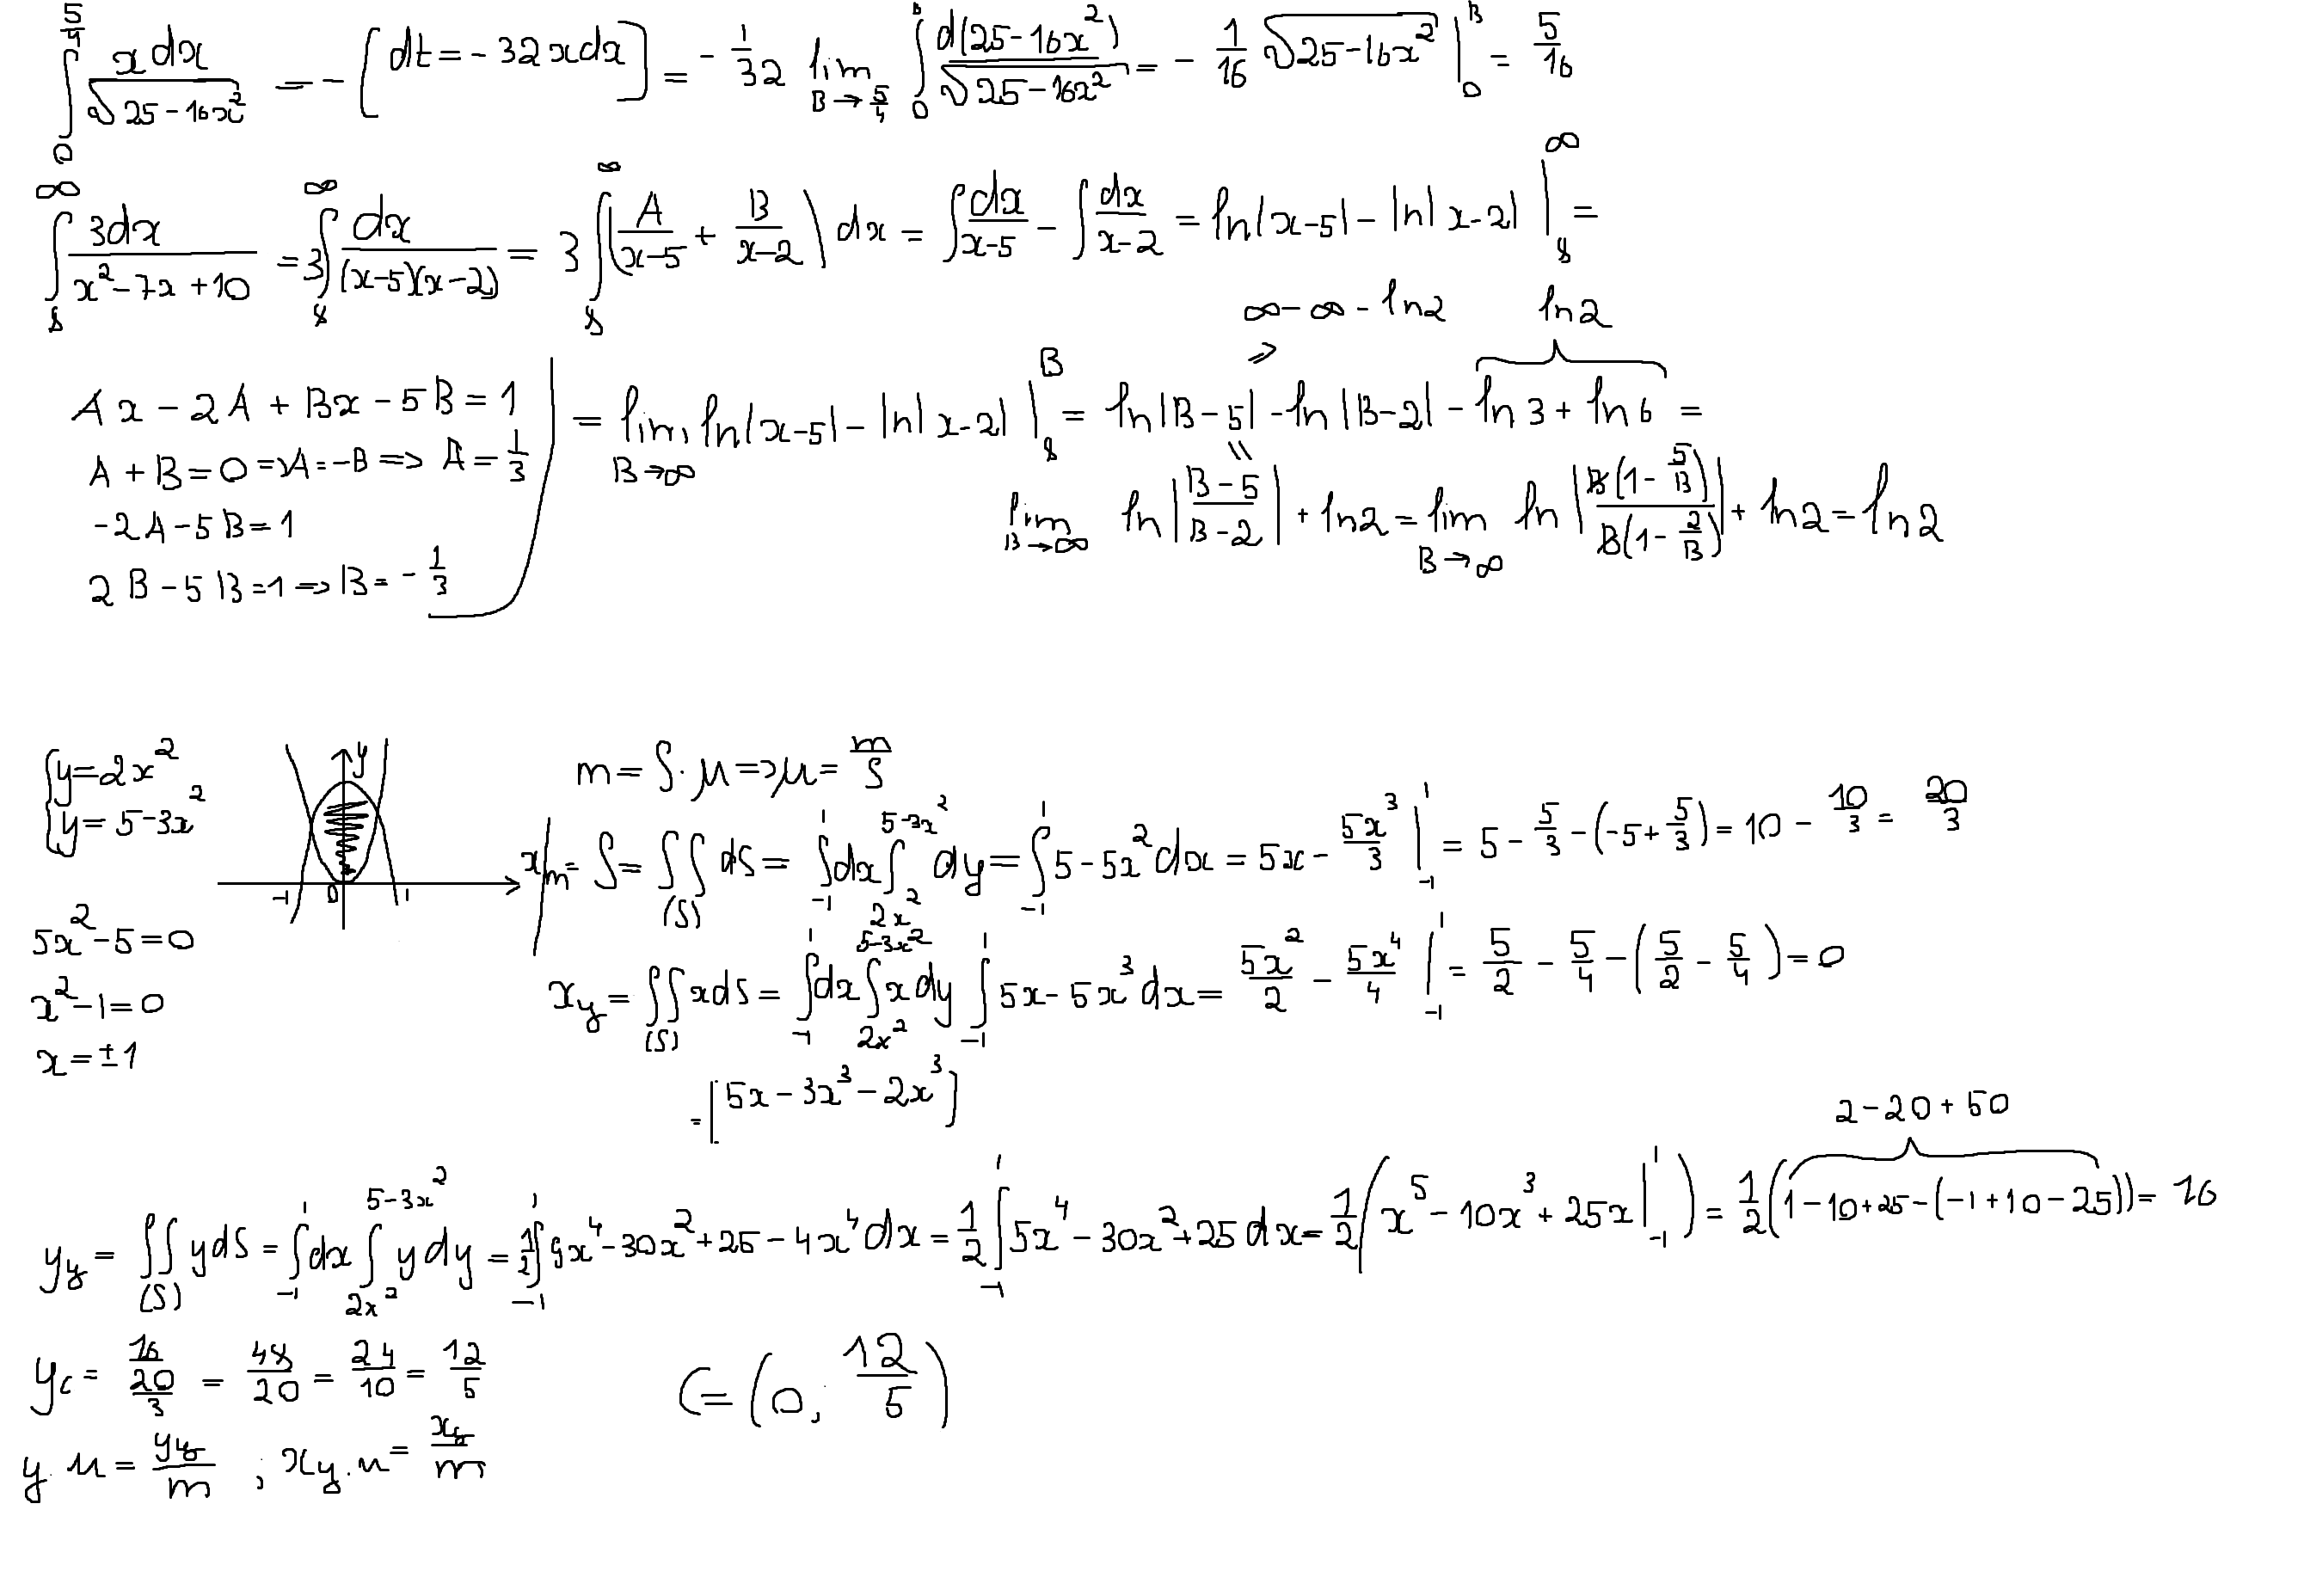 ∫_0^{5/4} xdx/√(25-16x²) = -[dt = -32xdx] = -1/32 lim_{B→5/4} ∫_0^B d(25-16x²)/√(25-16x²) = -1/16 √(25-16x²) |_0^B = 5/16
∫_8^∞ 3dx/(x²-7x+10) = 3∫_8^∞ dx/((x-5)(x-2)) = 3∫_8^∞ (A/(x-5) + B/(x-2)) dx = ∫dx/(x-5) - ∫dx/(x-2) = ln|x-5| - ln|x-2| |_8^∞ =
∞-∞-ln2 ln2
Ax - 2A + Bx - 5B = 1
A + B = 0 => A = -B => A = 1/3
-2A - 5B = 1
2B - 5B = 1 => B = -1/3
= lim_{B→∞} ln|x-5| - ln|x-2| |_8^B = ln|B-5| - ln|B-2| - ln3 + ln6 =
lim_{B→∞} ln|(B-5)/(B-2)| + ln2 = lim_{B→∞} ln|B(1-5/B)/B(1-2/B)| + ln2 = ln2
{y = 2x²
{y = 5-3x²
y
-1 0 1 x
5x²-5=0
x²-1=0
x=±1
m = S·μ => μ = m/S
m = S = ∫∫_(S) dS = ∫_{-1}^1 dx ∫_{2x²}^{5-3x²} dy = ∫_{-1}^1 5-5x² dx = 5x - 5x³/3 |_{-1}^1 = 5 - 5/3 - (-5+5/3) = 10 - 10/3 = 20/3
x_y = ∫∫_(S) xdS = ∫_{-1}^1 dx ∫_{2x²}^{5-3x²} x dy ∫_{-1}^1 5x-5x³ dx = 5x²/2 - 5x⁴/4 |_{-1}^1 = 5/2 - 5/4 - (5/2 - 5/4) = 0
= [5x-3x³-2x³]
2-20+50
y_y = ∫∫_(S) ydS = ∫_{-1}^1 dx ∫_{2x²}^{5-3x²} y dy = 1/2 ∫_{-1}^1 9x⁴-30x²+25-4x⁴ dx = 1/2 ∫_{-1}^1 5x⁴-30x²+25 dx = 1/2 (x⁵-10x³+25x |_{-1}^1) = 1/2 (1-10+25-(-1+10-25)) = 16
y_c = 16/(20/3) = 48/20 = 24/10 = 12/5
C = (0; 12/5)
y.м = y_y/m ; x_y.м = x_y/m